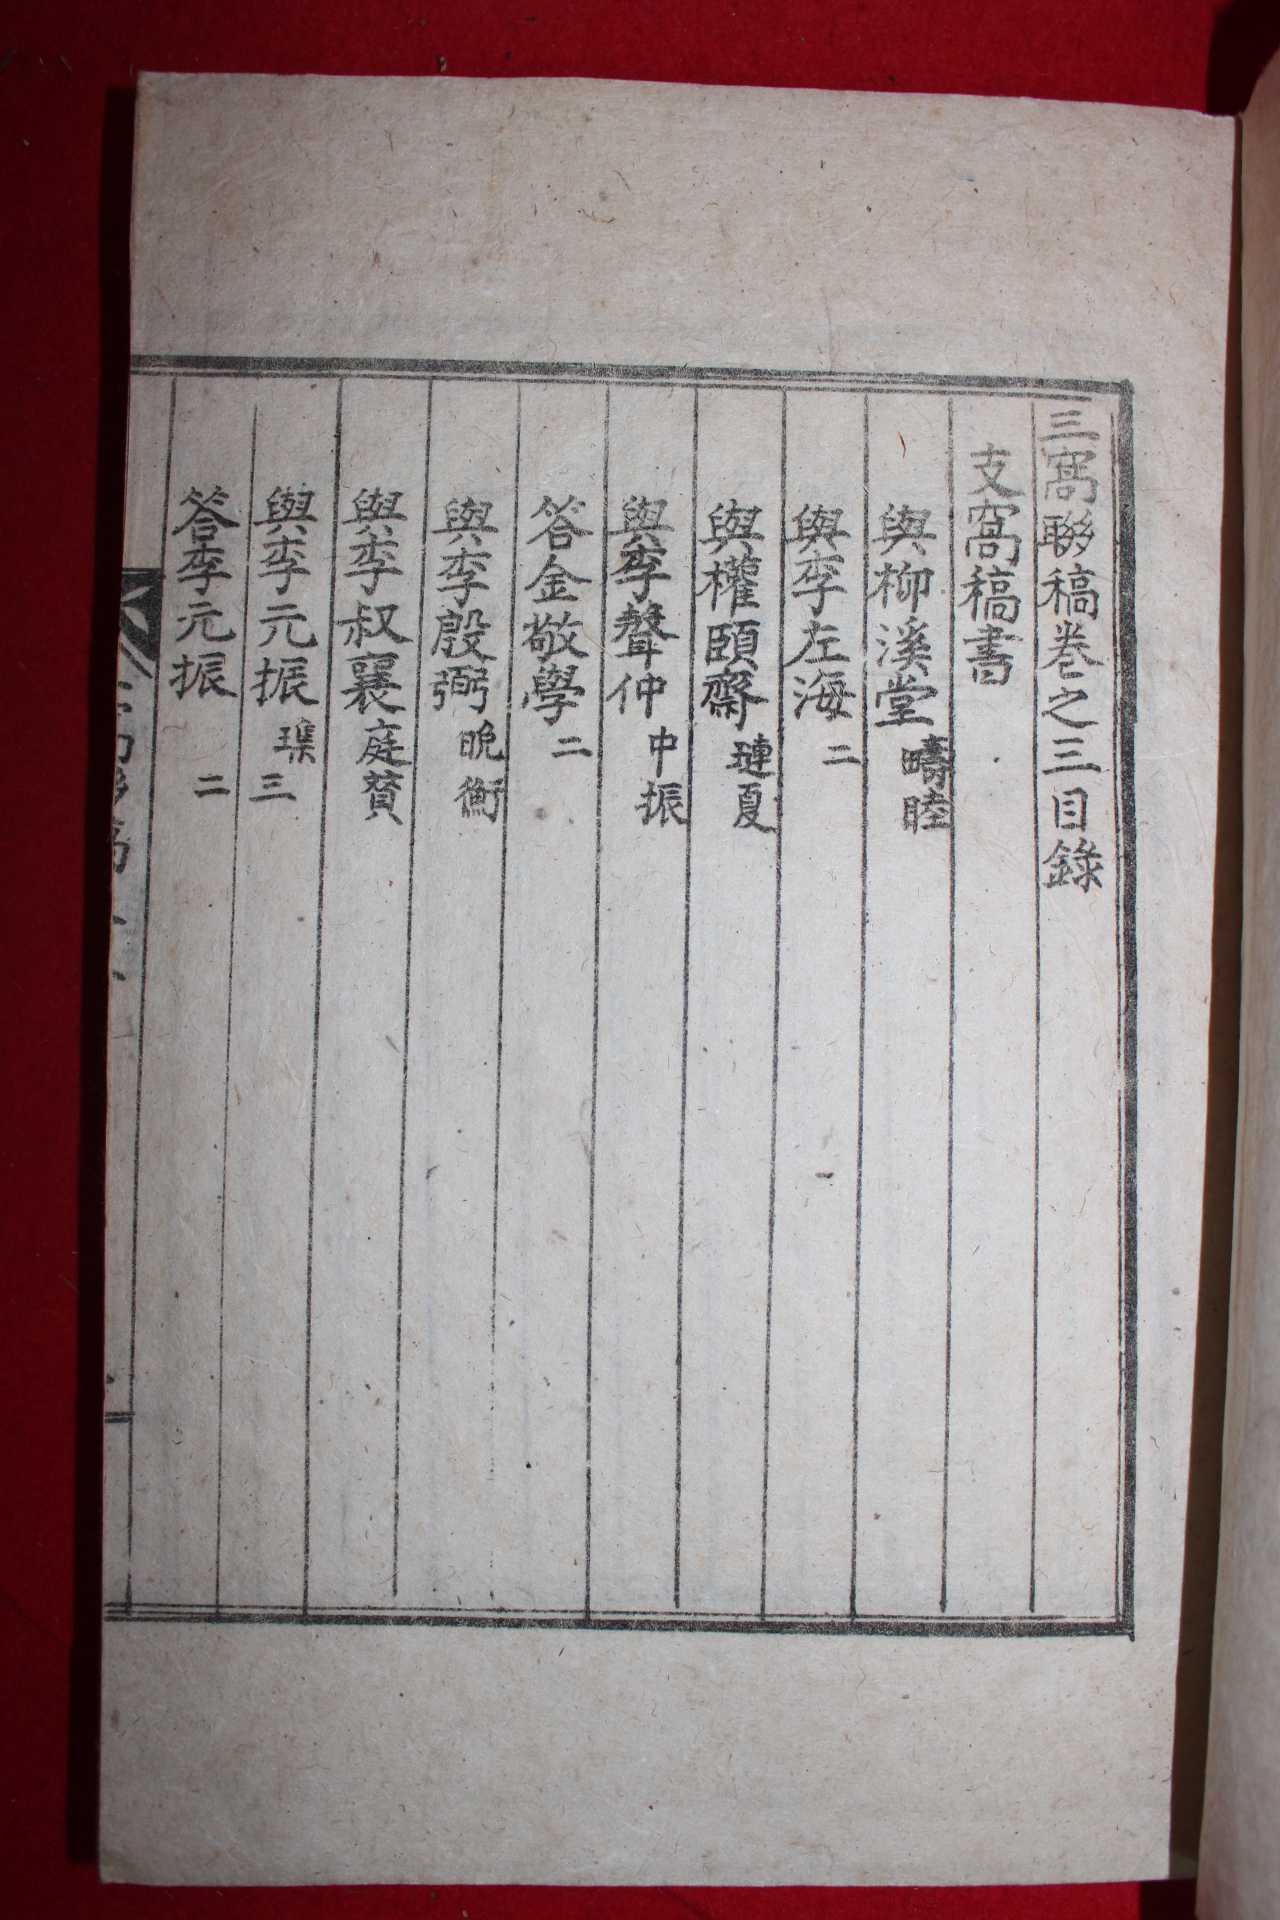 三窩聯稿卷之三目錄
支窩稿書
與柳溪堂 疇睦
與李左海 二
與權頤齋 璉夏
與李聲仲 中振
答金敬學 二
與李殷弼 晩衡
與李叔襄 庭贊
與李元振 三
答李元振 二